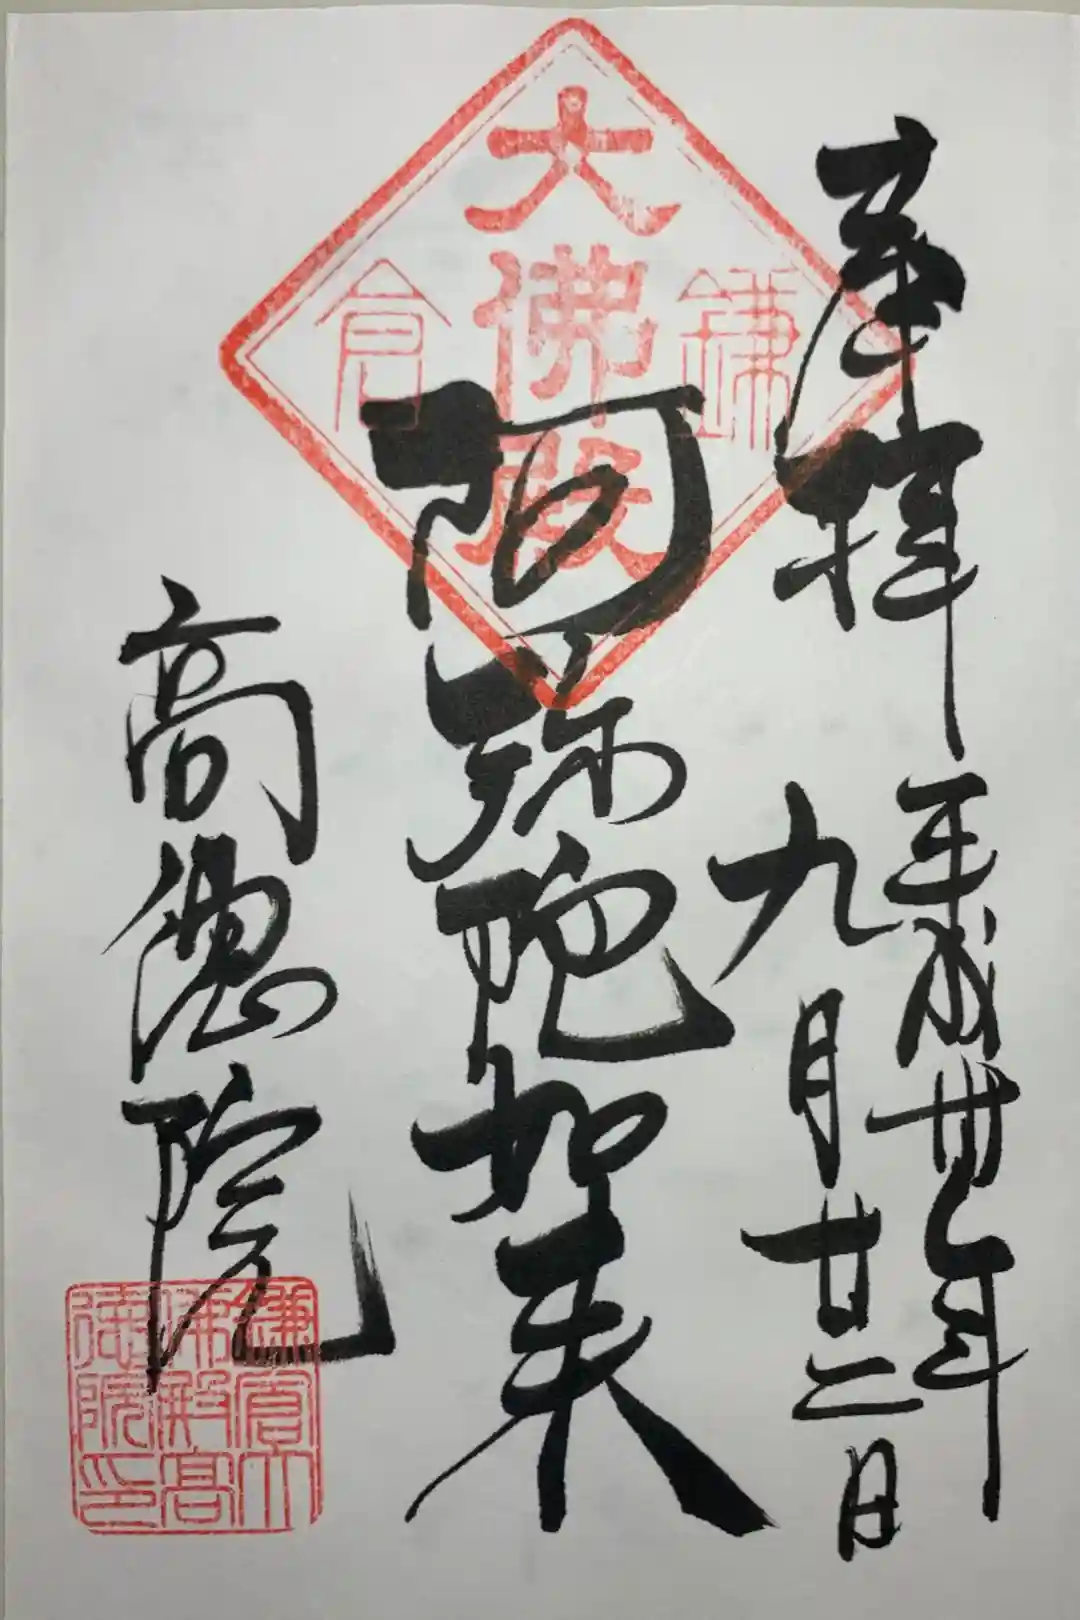 奉拝
平成卅年
九月廿二日
鎌倉
大佛殿
阿弥陀如来
高徳院
鎌倉大
佛殿高
徳院印